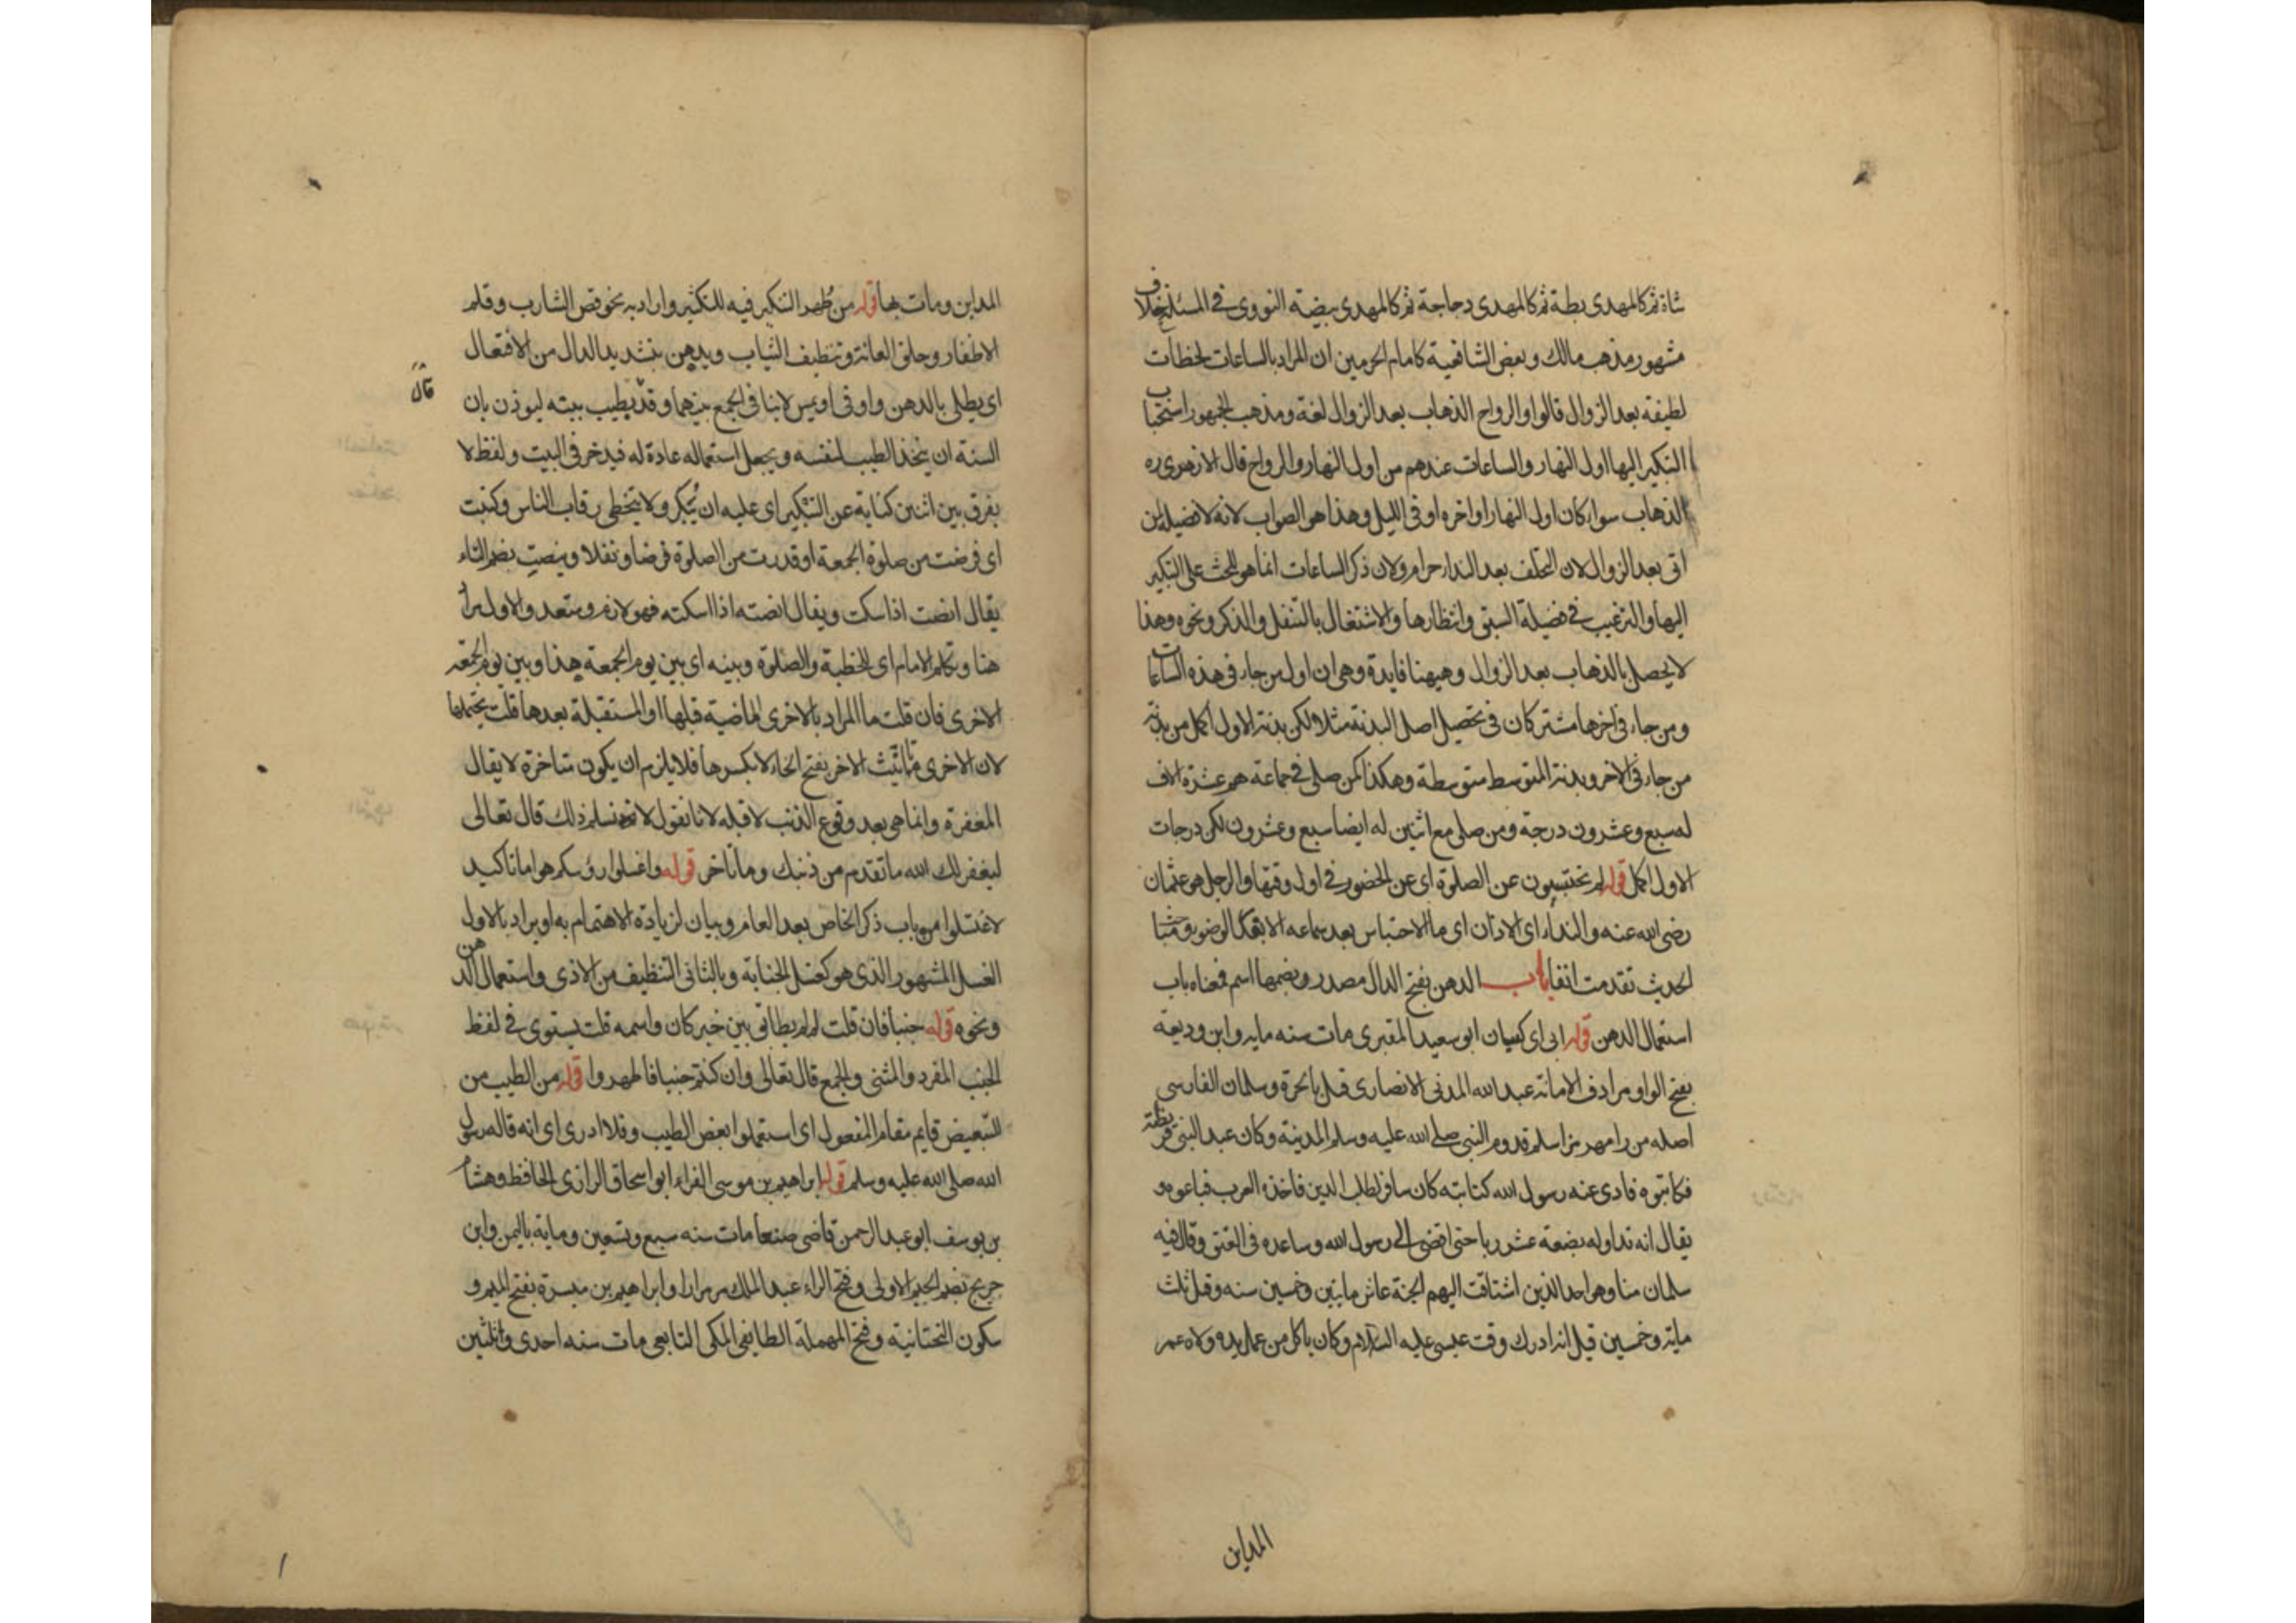 شاة ثم كالمهدى بطة ثم كالمهدى دجاجة ثم كالمهدى بيضة النووى فى المسئلة خلاف
مشهور مذهب مالك وبعض الشافعية كامام الحرمين ان المراد بالساعات لحظات
لطيفة بعد الزوال قالوا والرواح الذهاب بعد الزوال لغة ومذهب الجمهور استحباب
التبكير اليها اول النهار والساعات عندهم من اول النهار والرواح قال الازهرى ره
الذهاب سواء كان اول النهار او اخره او فى الليل وهذا هو الصواب لانه لا فضيلة لمن
اتى بعد الزوال لان التخلف بعد النداء حرام ولان ذكر الساعات انما هو للحث على التبكير
اليها والترغيب فى فضيلة السبق وانتظارها والاشتغال بالتنفل والذكر ونحوه وهذا
لا يحصل بالذهاب بعد الزوال وهيهنا فايدة وهى ان اول من جاء فى هذه الساعات
ومن جاء فى اخرها مشتركان فى تحصيل اصل البدنة مثلا لكن بدنة الاول اكمل من بدنة
من جاء فى الاخر وبدنة المتوسط متوسطة وهكذا كمن صلى فى جماعة هم عشرة الاف
له سبع وعشرون درجة ومن صلى مع اثنين له ايضا سبع وعشرون لكن درجات
الاول اكمل قوله لم تحتبسون عن الصلوة اى عن الحضور فى اول وقتها والرجل هو عثمان
رضى الله عنه والنداء اى الاذان اى ما الاحتباس بعد سماعه الا بقدر الوضوء ومباحث
الحديث تقدمت انفا باب الدهن بفتح الدال مصدر وبضمها اسم فمعناه باب
استعمال الدهن قوله ابى اى كيسان ابو سعيد المقبرى مات سنه مايه وابن وديعة
بفتح الواو مرادف الامانة عبد الله المدنى الانصارى قتل بالحرة وسلمان الفارسى
اصله من رامهرمز اسلم قدوم النبى صلى الله عليه وسلم المدينة وكان عبد البنى قريظة
فكاتبوه فادى عنه رسول الله كتابته كان سافر لطلب الدين فاخذه العرب فباعوه و
يقال انه تداوله بضعة عشر ربا حتى افضى الى رسول الله وساعده فى العتق وقال فيه
سلمان منا وهو احد الذين اشتاقت اليهم الجنة عاش مايتين وخمسين سنه وقيل ثلث
ماية وخمسين قيل انه ادرك وقت عيسى عليه السلام وكان ياكل من عمل يده ولاه عمر
المداين
المداين ومات بها قوله من طهر التنكير فيه للتكثير واراد به نحو قص الشارب وقلم
الاظفار وحلق العانة وتنظيف الثياب ويدهن بتشديد الدال من الافتعال
اى يطلى بالدهن واو فى او يمس لا ينافى الجمع بينهما وقد يطيب بيته ليوذن بان
قال
السنة ان يتخذ الطيب لنفسه ويجعل استعماله عادة له فيدخر فى البيت ولفظ لا
يفرق بين اثنين كناية عن التبكير اى عليه ان يبكر ولا يتخطى رقاب الناس وكتبت
اى فرضت من صلوة الجمعة او قدرت من الصلوة فرضا ونفلا وينصت بضم الياء
يقال انصت اذا سكت ويقال انصته اذا اسكته فهو لازم ومتعد والاول مراد
هنا وتكلم الامام اى للخطبة والصلوة وبينه اى بين يوم الجمعة هذا وبين يوم الجمعة
الاخرى فان قلت ما المراد بالاخرى الماضية قبلها او المستقبلة بعدها قلت يحتملهما
لان الاخرى تانيث الاخر بفتح الخاء لا بكسرها فلا يلزم ان يكون متاخرة لا يقال
المغفرة وانما هى بعد وقوع الذنب لا قبله لانا نقول لا نسلم ذلك قال تعالى
ليغفر لك الله ما تقدم من ذنبك وما تاخر قوله واغسلوا رؤسكم هو اما تاكيد
لاغتسلوا من باب ذكر الخاص بعد العام وبيان لزيادة الاهتمام به او يراد بالاول
الغسل المشهور الذى هو كغسل الجنابة وبالثانى التنظيف من الاذى واستعمال الدهن
ونحوه قوله جنبا فان قلت لم لم يطابق بين خبر كان واسمه قلت يستوى فى لفظ
الجنب المفرد والمثنى والجمع قال تعالى وان كنتم جنبا فاطهروا قوله من الطيب من
للتبعيض قايم مقام المفعول اى استعملوا بعض الطيب وفلا ادرى اى انه قاله رسول
الله صلى الله عليه وسلم قوله ابراهيم بن موسى الفراء ابو اسحاق الرازى الحافظ وهشام
بن يوسف ابو عبد الرحمن قاضى صنعا مات سنه سبع وتسعين وماية باليمن وابن
جريج بضم الجيم الاولى وفتح الراء عبد الملك مر مرارا وابراهيم بن ميسرة بفتح الميم و
سكون التحتانية وفتح المهملة الطايفى المكى التابعى مات سنه احدى وثلثين